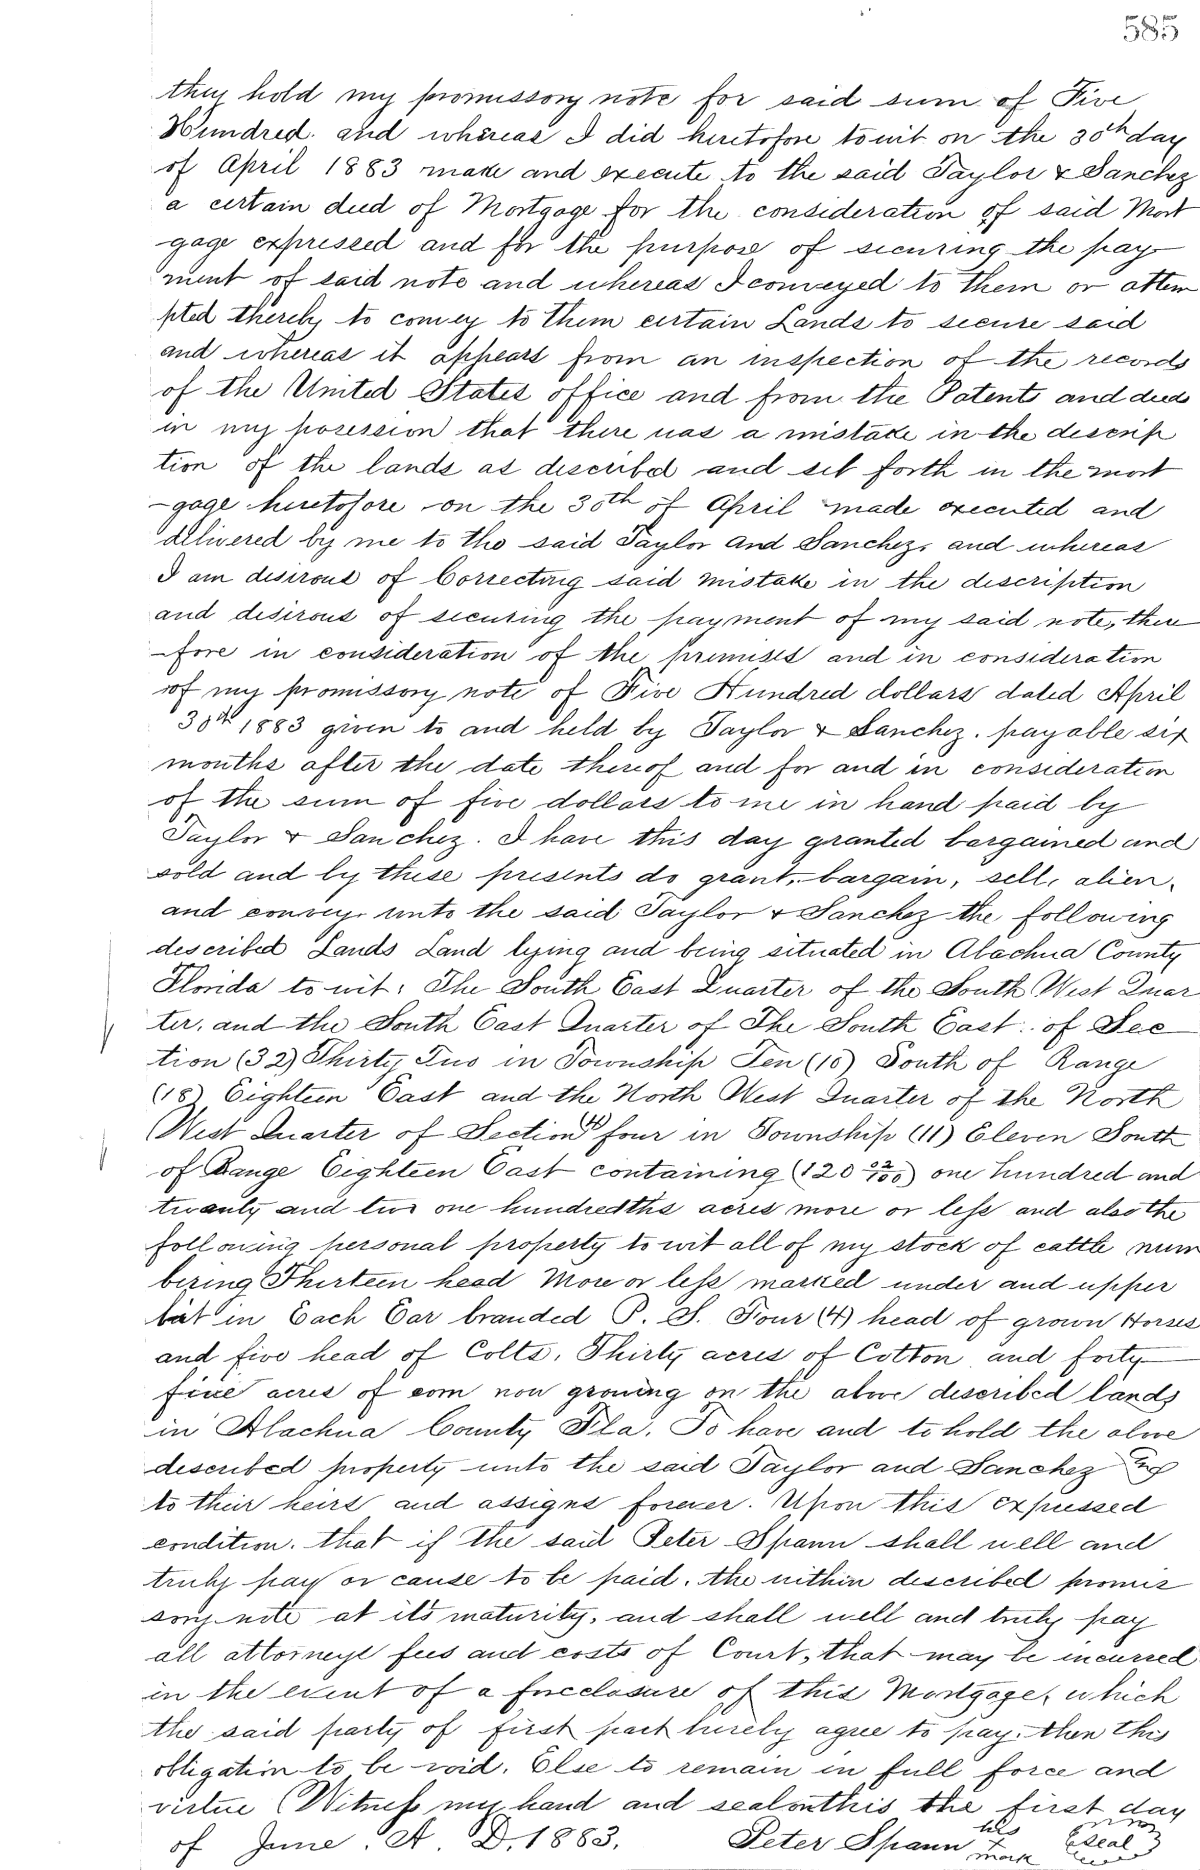 585
they hold my promissory note for said sum of Five
Hundred. and whereas I did heretofore to wit on the 30th day
of April 1883 make and execute to the said Taylor & Sanchez
a certain deed of Mortgage for the consideration of said Mort
gage expressed and for the purpose of securing the pay
ment of said note and whereas I conveyed to them or attem
pted thereby to convey to them certain Lands to secure said
and whereas it appears from an inspection of the records
of the United States office and from the Patents and deeds
in my posession that there was a mistake in the descrip
tion of the lands as described and set forth in the mort
-gage heretofore on the 30th of April made executed and
delivered by me to the said Taylor and Sanchez, and whereas
I am desirous of Correcting said mistake in the description
and desirous of securing the payment of my said note, there
-fore in consideration of the premises and in consideration
of my promissory note of Five Hundred dollars dated April
30th 1883 given to and held by Taylor & Sanchez. payable six
months after the date thereof and for and in consideration
of the sum of five dollars to me in hand paid by
Taylor & Sanchez. I have this day granted bargained and
sold and by these presents do grant, bargain, sell, alien,
and convey unto the said Taylor & Sanchez the following
described Lands Land lying and being situated in Alachua County
Florida to wit: The South East Quarter of the South West Quar
ter, and the South East Quarter of The South East. of Sec
tion (32) Thirty Two in Township Ten (10) South of Range
(18) Eighteen East and the North West Quarter of the North
West Quarter of Section (4) four in Township (11) Eleven South
of Range Eighteen East containing (120 02/100) one hundred and
twenty and two one hundredths acres more or less and also the
following personal property to wit all of my stock of cattle num
bering Thirteen head More or less marked under and upper
bit in Each Ear branded P. S. Four (4) head of grown Horses
and five head of Colts, Thirty acres of Cotton and forty
five acres of corn now growing on the above described lands
in Alachua County Fla. To have and to hold the above
described property unto the said Taylor and Sanchez
to their heirs and assigns forever. Upon this expressed
condition. that if the said Peter Spann shall well and
truly pay or cause to be paid. the within described promis
sory note at its maturity, and shall well and truly pay
all attorneys fees and costs of Court, that may be incurred
in the event of a foreclosure of this Mortgage, which
the said party of first part hereby agree to pay. then this
obligation to be void. Else to remain in full force and
virtue (Witness my hand and seal on this the first day
of June. A. D. 1883. Peter Spann his + mark (Seal)